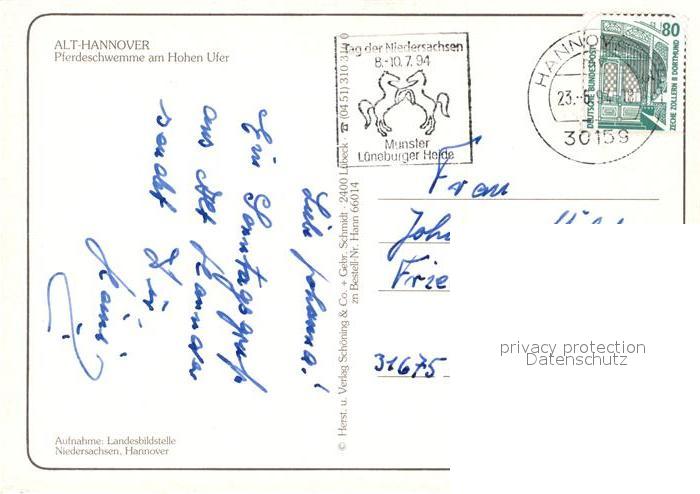 ALT-HANNOVER
Pferdeschwemme am Hohen Ufer
Liebe Johanna!
Ein Sonntagsgruß
aus Alt Hannover
sendet Dir
Aufnahme: Landesbildstelle
Niedersachsen, Hannover
© Herst. u. Verlag Schöning & Co. + Gebr. Schmidt · 2400 Lübeck · ☎ (04 51) 310 31 0
zn Bestell-Nr. Hann 66014
Tag der Niedersachsen
8.-10.7.94
Munster
Lüneburger Heide
HANNOV
23.-6.94-18
30159
80
DEUTSCHE BUNDESPOST
ZECHE ZOLLERN II DORTMUND
Frau
Joh
Frie
31675
privacy protection
Datenschutz